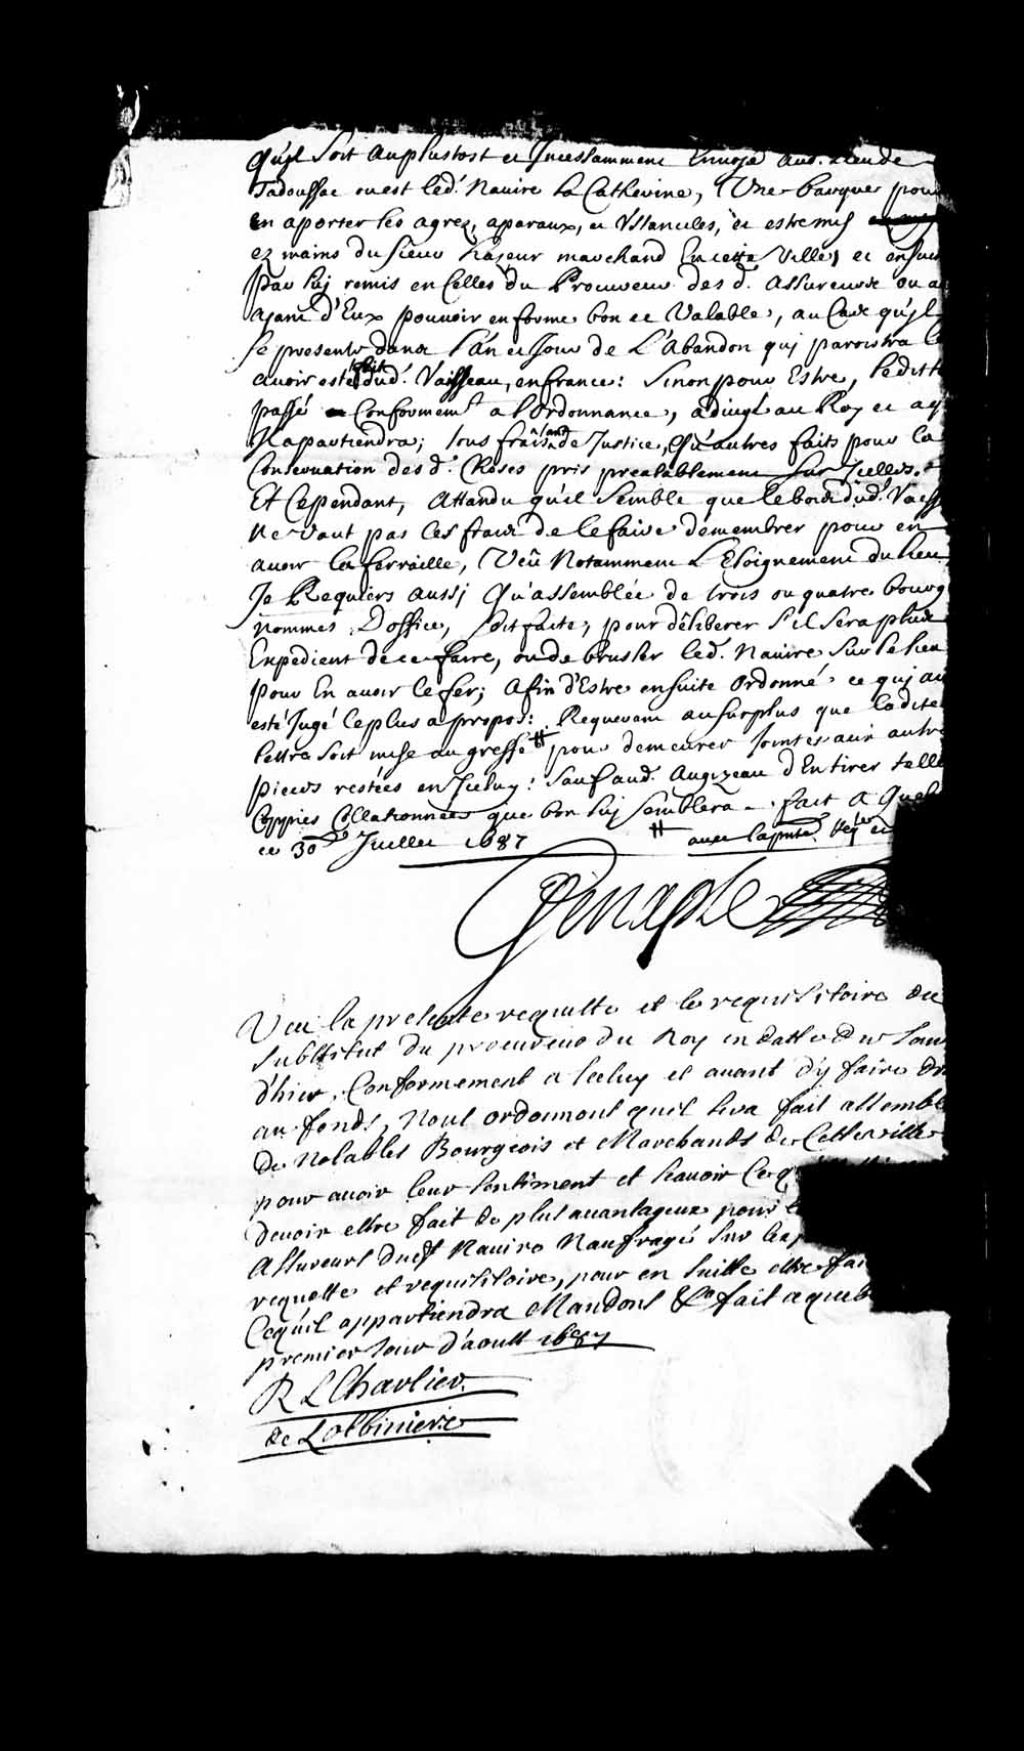 qu'jl soit auplustost et Jncessamment Enuoyé aud. Lieu de
Tadoussac ou est led. Nauire la Catherine, Une barque pour
en aporter les agrez, aparaux, et Ustanciles, et estre mis
ez mains du sieur hazeur marchand En cette Ville, et ensuit
par luj remis en Celles du Procureur des d. assureurs ou a
ayant d'Eux pouvoir en forme bon et Valable, au Cas qu'jl
se presente dans l'an et Jour de L'abandon quj paroistra l
avoir esté fait dud. Vaisseau, en france: Sinon pour Estre, ledit t
passé Conformemt a l'ordonnance, adiugé au Roy et a q
Jl apartiendra; tous frais tant de Justice, Qu'autres faits pour la
Conservation des d. Choses pris prealablement sur Jcelles.
Et Cependant, attandu qu'il semble que le bois dud. Vaiss
ne Vaut pas les frais de le faire démembrer pour en
avoir la ferraille, Veû Notamment L'Eloignement du lieu
Je Requiers aussj Qu'assemblée de trois ou quatre bourg
nommés D'office, soit faite, pour déliberer s'il sera plus
Expedient de ce faire, ou de brusler led. Nauire sur le lieu
pour En avoir le fer; afin d'Estre ensuite ordonné ce quj au
esté Jugé le plus a propos: Requerant au surplus que ladite
lettre soit mise au greffe # pour demeurer Jointes aux autre
pieces restées en Jceluy: sauf aud. Augizeau d'En tirer telle
Coppies Collationnées que bon luj semblera. fait A Queb
ce 30e Juillet 1687 # auec la pnte. Reqte et
Genaple
Veu la presente requeste et le requisitoire du
substitut du procureur du Roy en datte du Jour
d'hier, Conformement a Iceluy et auant d'y faire dr
au fonds, Nous ordonnons quil sera fait assemblé
de Notables Bourgeois et Marchands de Cette ville
pour auoir leur sentiment et scauoir Ce q
deuoir estre fait de plus auantageux pour l
Assureurs dudt Nauire Naufragé sur la p
requeste et requisitoire, pour en suitte estre fai
Ce qu'il appartiendra Mandons &c fait a queb
premier Jour d'aoust 1687
R L Chartier
de Lotbiniere